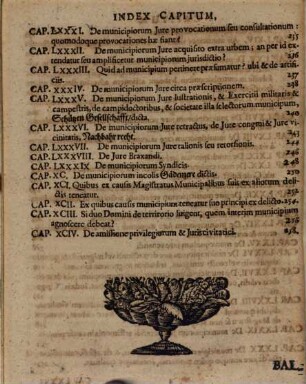 INDEX CAPITUM,
CAP. LXXXI. De municipiorum Jure provocationum seu consultationum:
quomodoque provocationes hæ fiant? 235
CAP. LXXXII. De municipiorum Jure acquisito extra urbem: an per id ex-
tendatur seu amplificetur municipiorum jurisdictio?
CAP. LXXXIII. Quid ad municipium pertinere præsumatur? ubi & de artifi-
ciis.
CAP. LXXXIV. De municipiorum Jure circa præscriptionem.
CAP. LXXXV. De municipiorum Jure lustrationis, & Exercitii militaris &
campestris, de campidoctoribus, & societate illa selectorum municipum,
Schützen Gesellschafft/ dicta.
CAP. LXXXVI. De municipiorum Jure retractus, de Jure congrui & Jure vi-
cinitatis, Nachbahr recht.
CAP. LXXXVII. De municipiorum Jure talionis seu retorsionis.
CAP. LXXXVIII. De Jure fraxandi.
CAP. LXXXIX De municipiorum Syndicis.
CAP. XC. De municipiorum incolis Gädenere dictis. 250
CAP. XCI. Quibus ex causis Magistratus Municipalibus suis ex aliorum deli-
ctis teneatur.
CAP. XCII. Ex quibus causis municipium teneatur suo principi ex delicto. 254.
CAP. XCIII. Si duo Domini de territorio litigent, quem interim municipium
agnoscere debeat?
CAP. XCIV. De amissione privilegiorum & Juris civitatici.
BAL